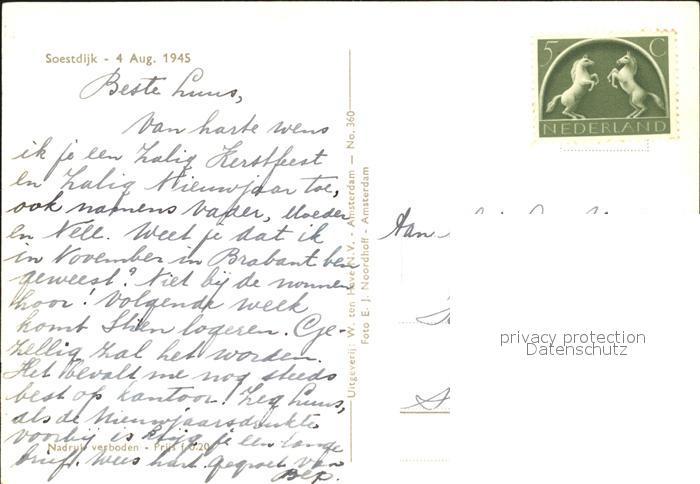 Soestdijk - 4 Aug. 1945
5 C
NEDERLAND
Beste Luus,
Van harte wens
ik je een Zalig Kerstfeest
en Zalig Nieuwjaar toe,
ook namens Vader, Moeder
en Nell. Weet je dat ik
in November in Brabant ben
geweest? Niet bij de nonnen
hoor! Volgende week
komt Stien logeren. Ge-
zellig zal het worden.
Het bevalt me nog steeds
best op kantoor! Zeg Luus,
als de Nieuwjaarsdrukte
voorbij is krijg je een lange
brief. Wees hart. gegroet van
Bep.
Nadruk verboden - Prijs f 0.20
Uitgeverij: W. ten Have N.V. - Amsterdam — No. 360
Foto E. J. Noordhoff - Amsterdam
Aan
privacy protection
Datenschutz